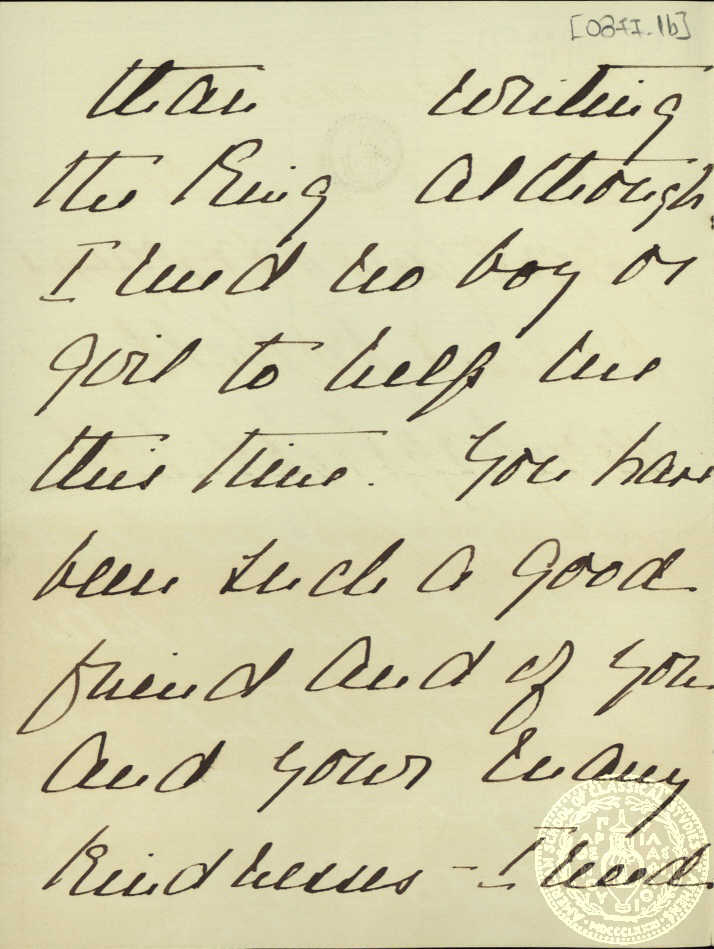 than writing
the King although
I need no boy or
girl to help me
this time. You have
been such a good
friend and of you
and your many
kindnesses – I need
AMERICAN SCHOOL OF CLASSICAL STUDIES
MDCCCLXXXI